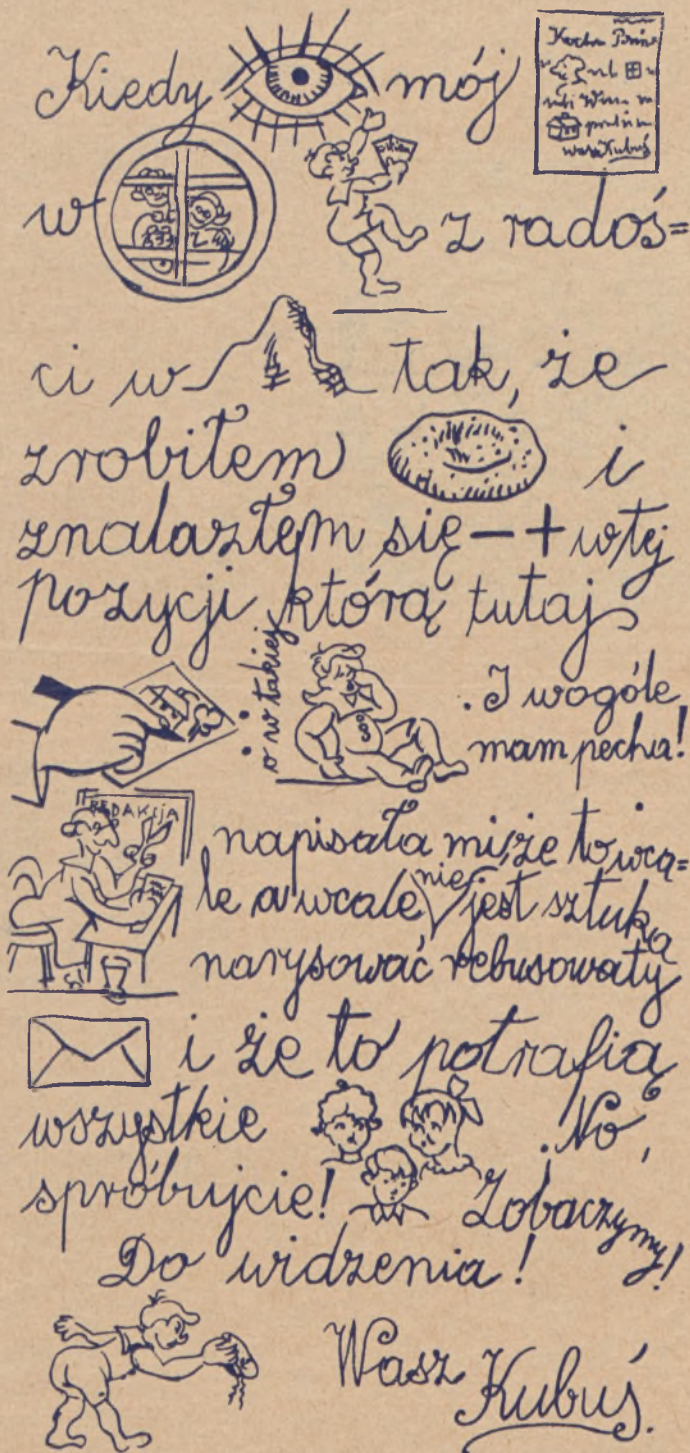 Kiedy mój
Kochn
Wasz Kubuś
w z radoś=
ci w tak, że
zrobiłem i
znalazłem się - + w tej
pozycji którą tutaj
o w takiej
. I wogóle
mam pecha!
REDAKCJA
napisała mi, że to wca=
le a wcale nie jest sztuką
narysować rebusowaty
i że to potrafią
wszystkie . No,
spróbujcie! Zobaczymy!
Do widzenia!
Wasz Kubuś.